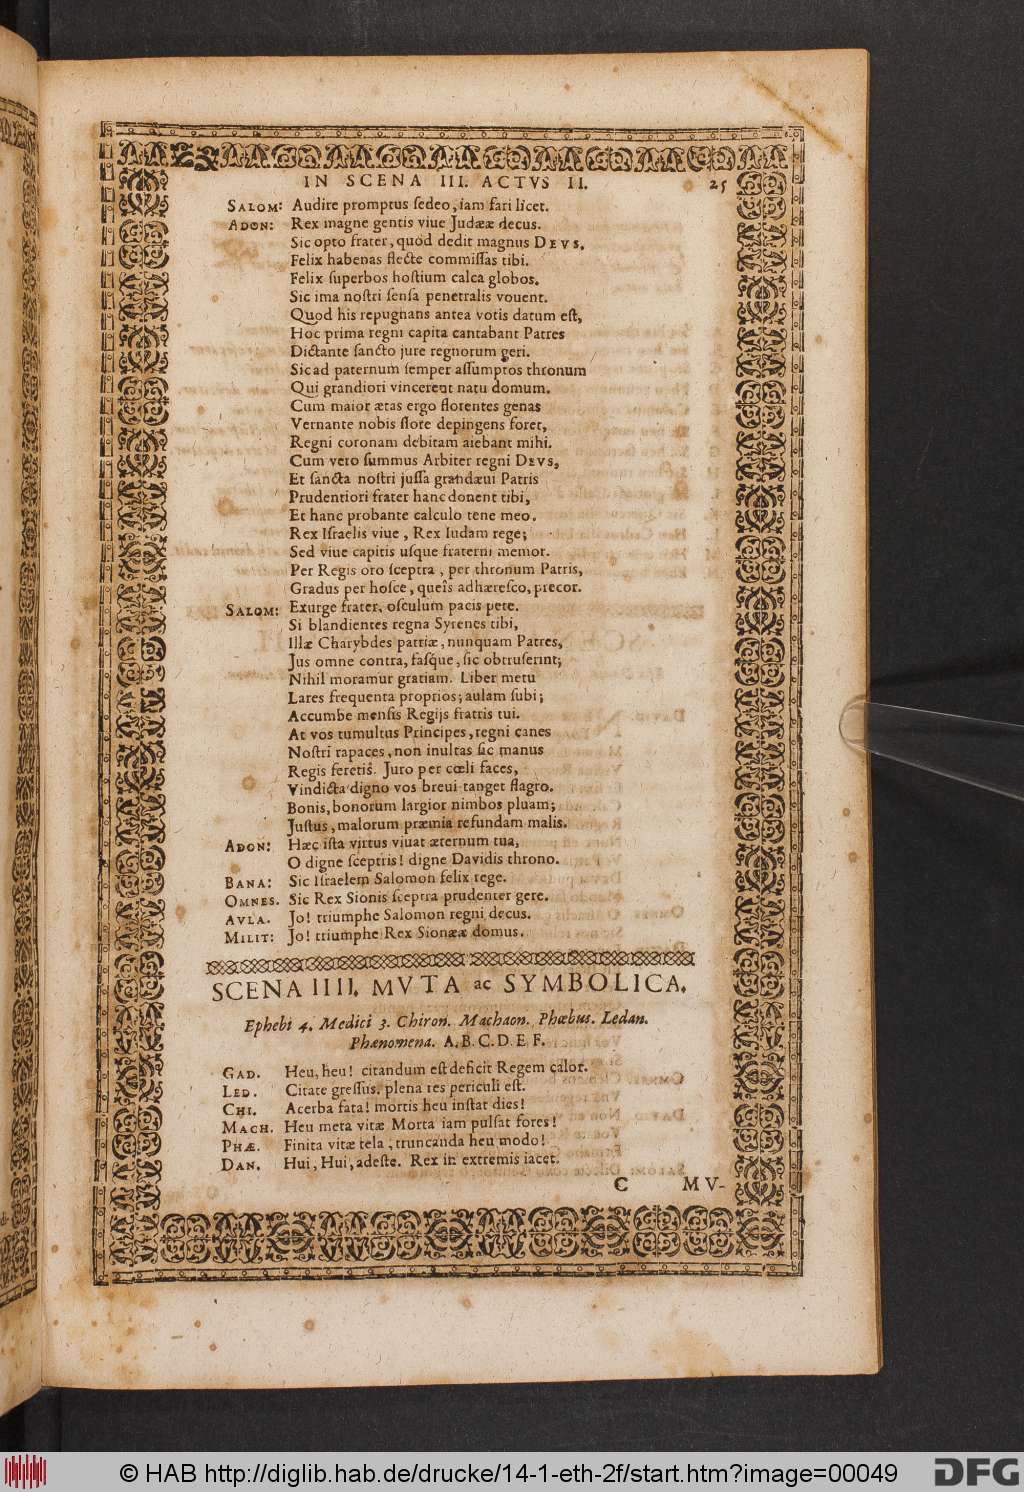 IN SCENA III. ACTVS II. 25
SALOM: Audire promptus ſedeo, iam fari licet.
ADON: Rex magne gentis viue Judææ decus.
Sic opto frater, quod dedit magnus DEVS.
Felix habenas flecte commiſſas tibi.
Felix ſuperbos hoſtium calca globos.
Sic ima noſtri ſenſa penetralis vouent.
Quod his repugnans antea votis datum eſt,
Hoc prima regni capita cantabant Patres
Dictante ſancto jure regnorum geri.
Sic ad paternum ſemper aſſumptos thronum
Qui grandiori vincerent natu domum.
Cum maior ætas ergo florentes genas
Vernante nobis flore depingens foret,
Regni coronam debitam aiebant mihi.
Cum vero ſummus Arbiter regni DEVS,
Et ſancta noſtri juſſa grandæui Patris
Prudentiori frater hanc donent tibi,
Et hanc probante calculo tene meo.
Rex Iſraelis viue, Rex Iudam rege;
Sed viue capitis uſque fraterni memor.
Per Regis oro ſceptra, per thronum Patris,
Gradus per hoſce, queîs adhæreſco, precor.
SALOM: Exurge frater, oſculum pacis pete.
Si blandientes regna Syrenes tibi,
Illæ Charybdes patriæ, nunquam Patres,
Jus omne contra, faſque, ſic obtruſerint;
Nihil moramur gratiam. Liber metu
Lares frequenta proprios; aulam ſubi;
Accumbe menſis Regijs fratris tui.
At vos tumultus Principes, regni canes
Noſtri rapaces, non inultas ſic manus
Regis feretis. Juro per cœli faces,
Vindicta digno vos breui tanget flagro.
Bonis, bonorum largior nimbos pluam;
Juſtus, malorum præmia refundam malis.
ADON: Hæc iſta virtus viuat æternum tua,
O digne ſceptris! digne Davidis throno.
BANA: Sic Iſraelem Salomon felix rege.
OMNES. Sic Rex Sionis ſceptra prudenter gere.
AVLA. Jo! triumphe Salomon regni decus.
MILIT: Jo! triumphe Rex Sionææ domus.
SCENA IIII. MVTA ac SYMBOLICA.
Ephebi 4. Medici 3. Chiron. Machaon. Phœbus. Ledan.
Phænomena. A. B. C. D. E F.
GAD. Heu, heu! citandum eſt deficit Regem calor.
LED. Citate greſſus. plena res periculi eſt.
CHI. Acerba fata! mortis heu inſtat dies!
MACH. Heu meta vitæ Morta iam pulſat fores!
PHÆ. Finita vitæ tela, truncanda heu modo!
DAN. Hui, Hui, adeſte. Rex in extremis iacet.
C MV-
© HAB http://diglib.hab.de/drucke/14-1-eth-2f/start.htm?image=00049 DFG